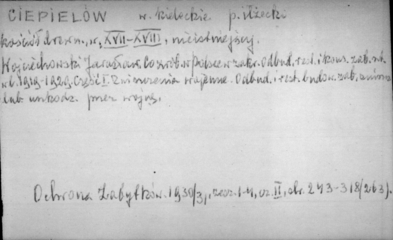 CIEPIELÓW w. kieleckie p. iłżecki
kościół drewn., w. XVII-XVIII, nieistniejący.
Wojciechowski Jarosław, Co zrobiono w Polsce w zakr. Odbud., rest. i kons. zab. szt.
w l. 1919-1929. Część I. Zniszczenia wojenne. Odbud. i rest. budow. zab. zniszcz.
lub uszkodz. przez wojnę.
Ochrona Zabytków. 1930/31, zesz. 1-4, cz. II, str. 243-318 (263).